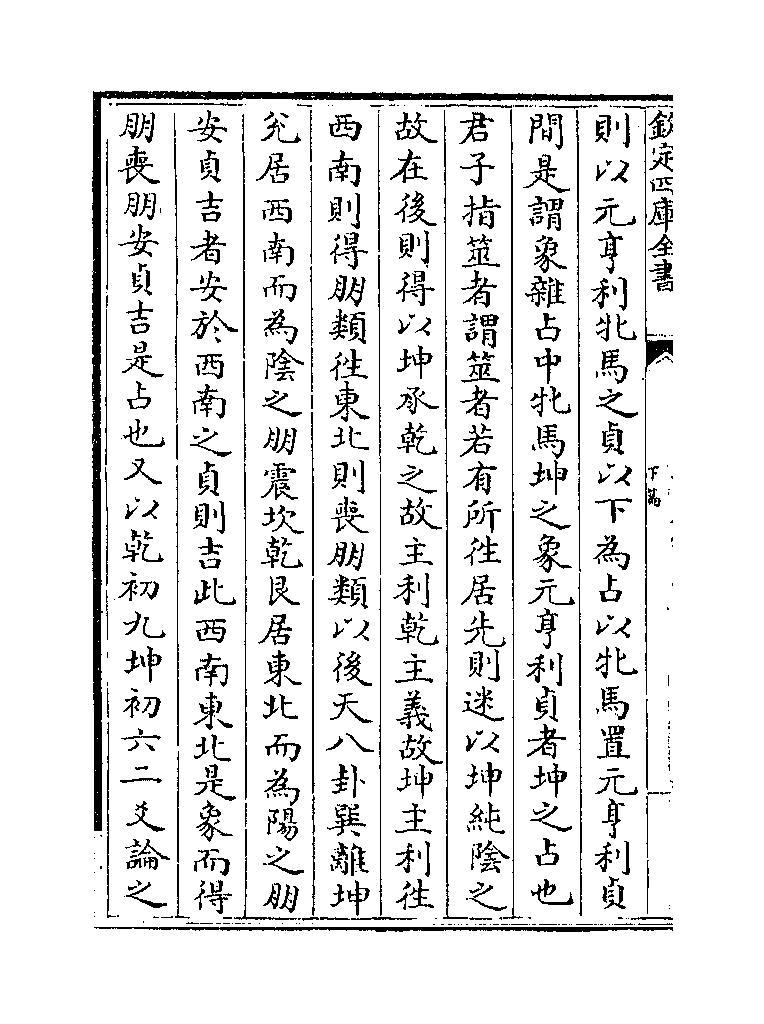 欽定四庫全書
下篇
則以元亨利牝馬之貞以下為占以牝馬置元亨利貞
間是謂象雜占中牝馬坤之象元亨利貞者坤之占也
君子指筮者謂筮者若有所徃居先則迷以坤純陰之
故在後則得以坤承乾之故主利乾主義故坤主利徃
西南則得朋類徃東北則喪朋類以後天八卦巽離坤
兊居西南而為陰之朋震坎乾艮居東北而為陽之朋
安貞吉者安於西南之貞則吉此西南東北是象而得
朋喪朋安貞吉是占也又以乾初九坤初六二爻論之